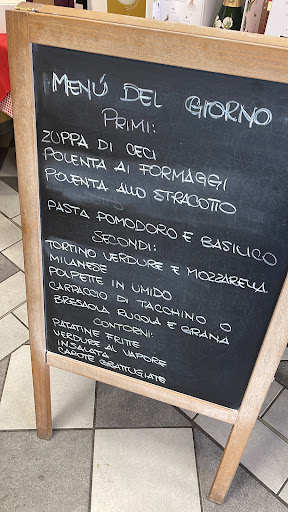 MENÚ DEL GIORNO
PRIMI:
ZUPPA DI CECI
POLENTA AI FORMAGGI
POLENTA ALLO STRACOTTO
PASTA POMODORO E BASILICO
SECONDI:
TORTINO VERDURE E MOZZARELLA
MILANESE
POLPETTE IN UMIDO
CARPACCIO DI TACCHINO O
BRESAOLA RUCOLA E GRANA
CONTORNI:
PATATINE FRITTE
VERDURE AL VAPORE
INSALATA
CAROTE GRATTUGIATE